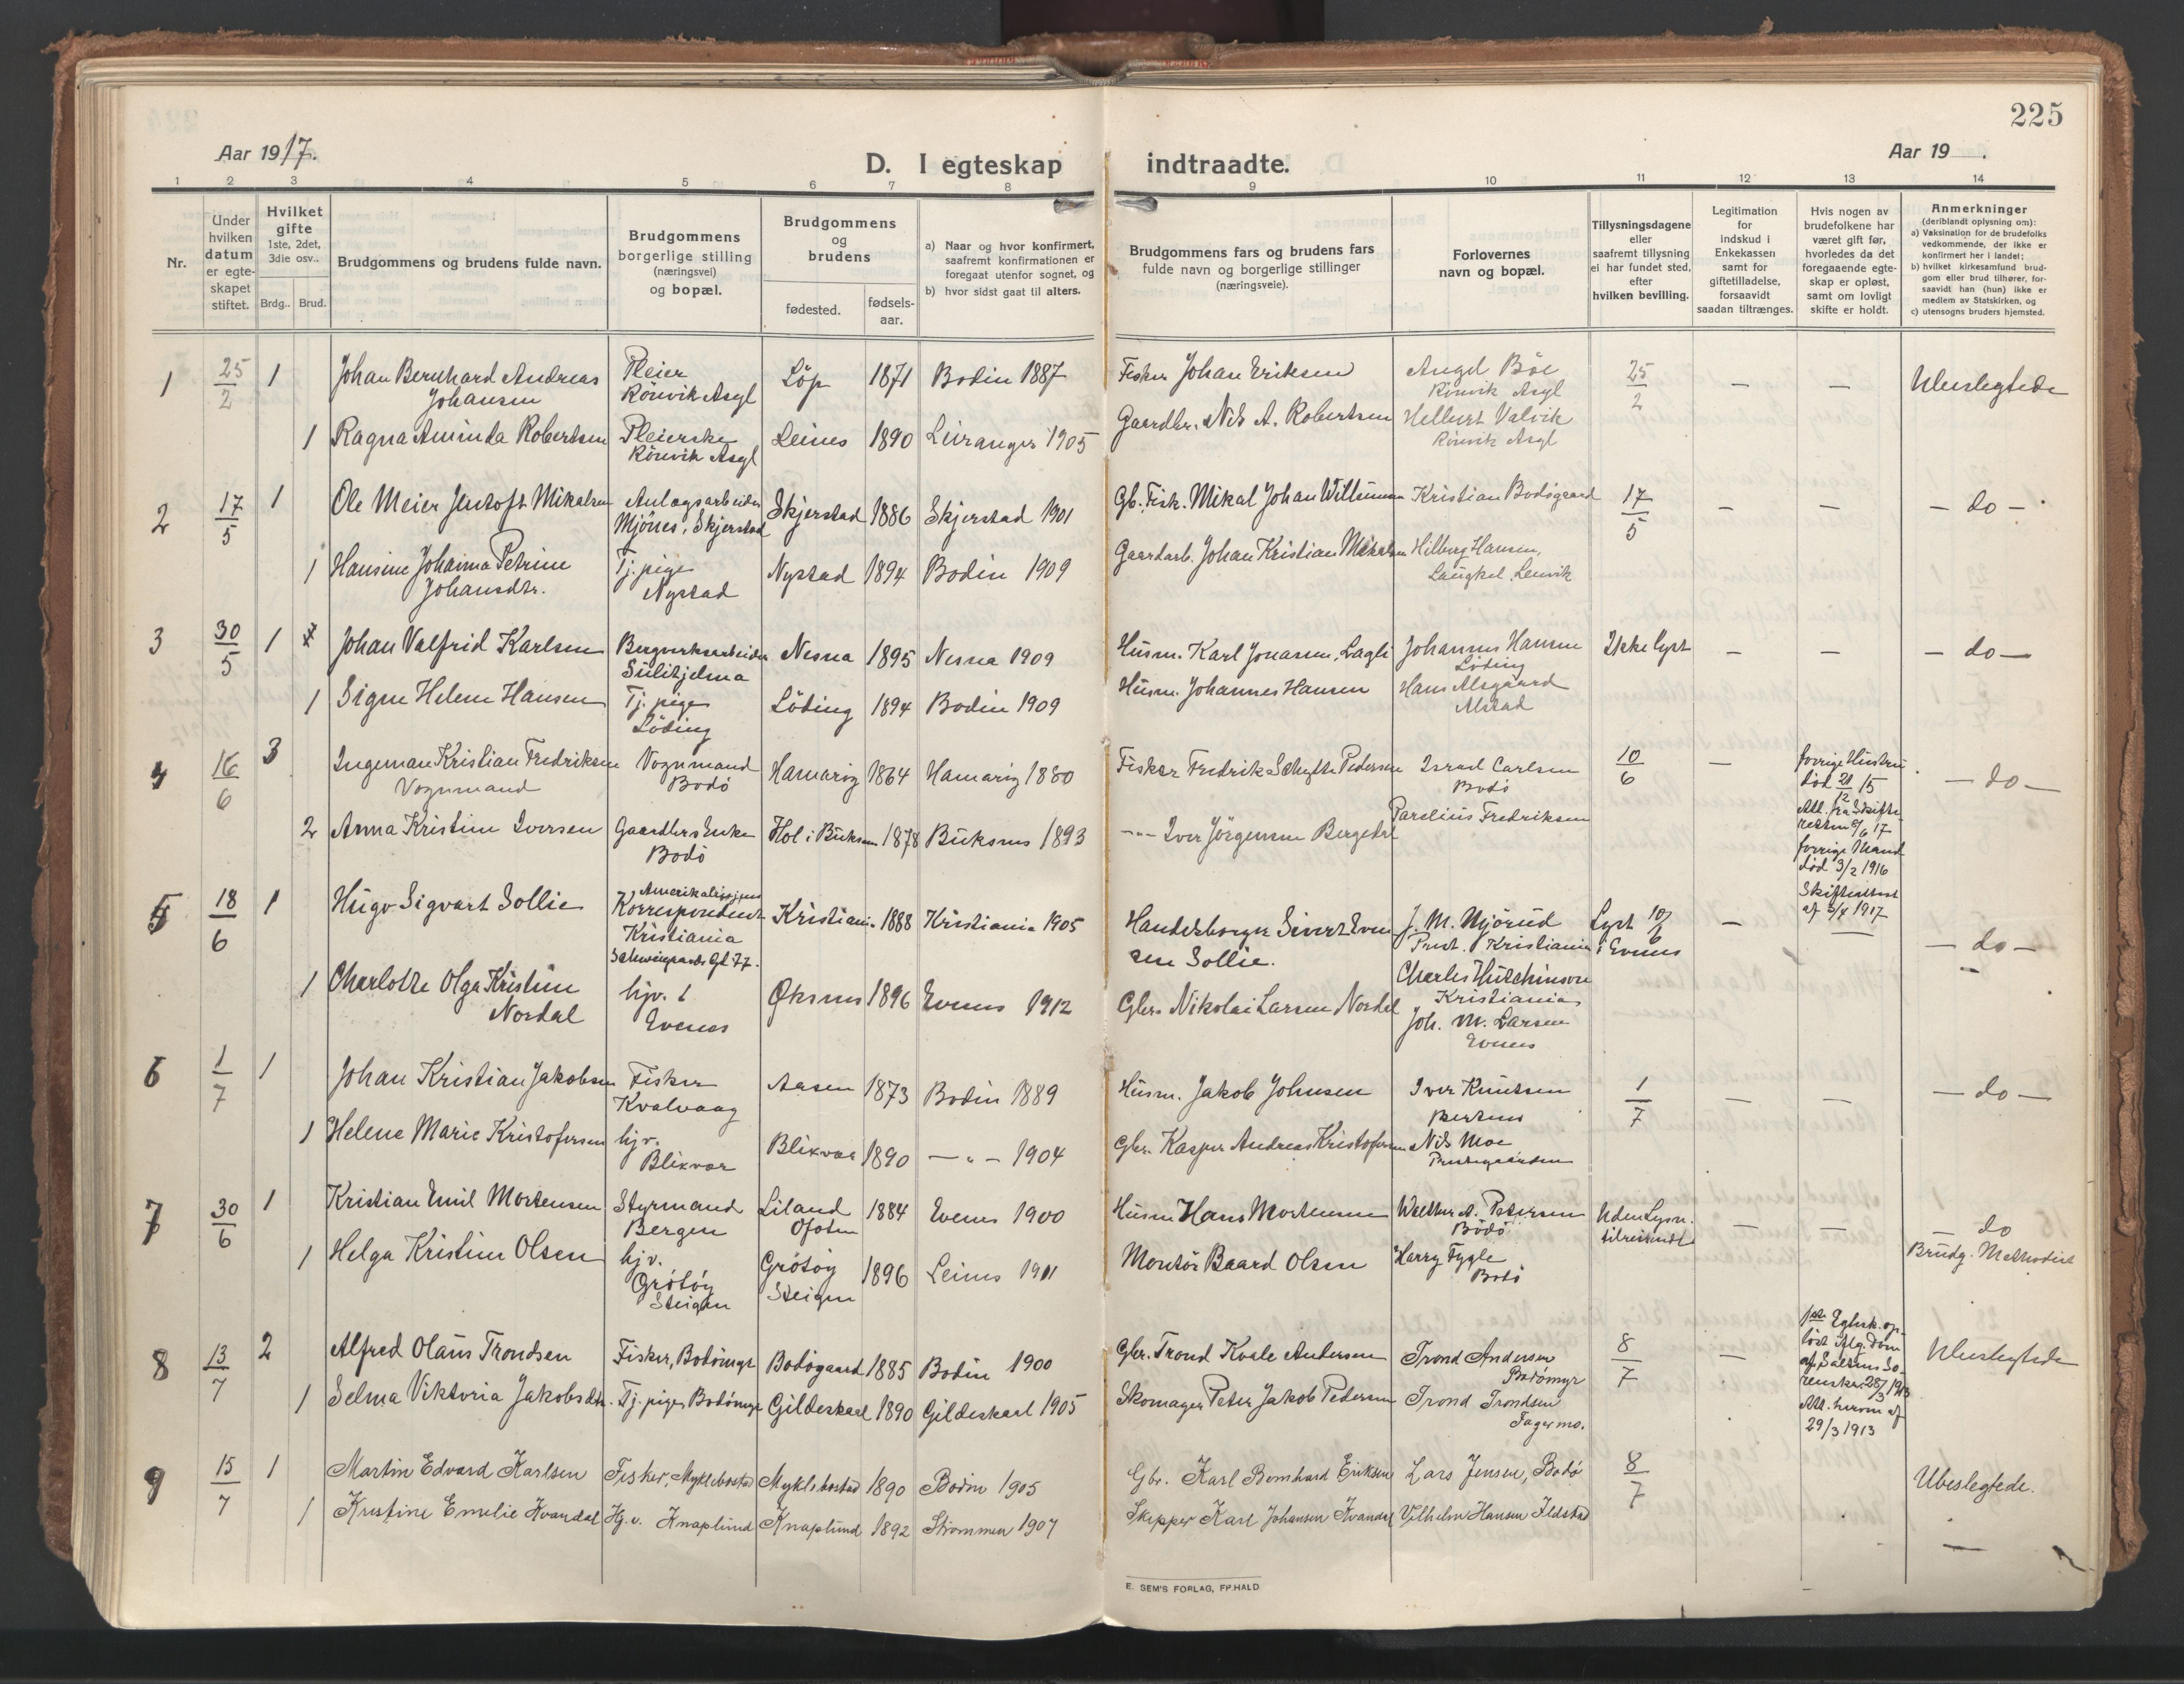 225
Aar 1917.
D. I egteskap indtraadte.
Aar 19 .
1 2 3 4 5 6 7 8 9 10 11 12 13 14
Nr.
Under
hvilken
datum
er egte-
skapet
stiftet.
Hvilket
gifte
1ste, 2det,
3die osv..
Brdg.. Brud.
Brudgommens og brudens fulde navn.
Brudgommens
borgerlige stilling
(næringsvei)
og bopæl.
Brudgommens
og
brudens
fødested.
fødsels-
aar.
a) Naar og hvor konfirmert,
saafremt konfirmationen er
foregaat utenfor sognet, og
b) hvor sidst gaat til alters.
Brudgommens fars og brudens fars
fulde navn og borgerlige stillinger
(næringsveie).
Forlovernes
navn og bopæl.
Tillysningsdagene
eller
saafremt tillysning
ei har fundet sted,
efter
hvilken bevilling.
Legitimation
for
indskud i
Enkekassen
samt for
giftetilladelse,
forsaavidt
saadan tiltrænges.
Hvis nogen av
brudefolkene har
været gift før,
hvorledes da det
foregaaende egte-
skap er opløst,
samt om lovligt
skifte er holdt.
Anmerkninger
(deriblandt oplysning om):
a) Vaksination for de brudefolks
vedkommende, der ikke er
konfirmert her i landet;
b) hvilket kirkesamfund brud-
gom eller brud tilhører, for-
saavidt han (hun) ikke er
medlem av Statskirken, og
c) utensogns bruders hjemsted.
1 25/2 1 Johan Bernhard Andreas Pleier Löp 1871 Bodin 1887 Fisker Johan Eriksen Angel Böe 25/2 — — Ubeslegtede
Johansen Rönvik Asyl Rönvik Asyl
1 Ragna Aminda Robertsen Pleierske Leines 1890 Leiranger 1905 Gaardbr. Nils A. Robertsen Valvik
Rönvik Asyl Rönvik Asyl
2 17/5 1 Ole Meier Jentoft Mikalsen Anlægsarbeider Skjerstad 1886 Skjerstad 1901 Gb. Fisk. Mikal Johan Willumsen Kristian Bodøgaard 17/5 — — — do —
Mjönes, Skjerstad
1 Hansine Johanna Petrine Tj. pige Nystad 1894 Bodin 1909 Gaardarb. Johan Kristian Mikalsen Hilberg Hansen,
Johansdtr. Nystad
3 30/5 1 Johan Valfrid Karlsen Bergverksarbeider Nesna 1895 Nesna 1909 Husm. Karl Jonassen, Johannes Hansen Ikke lyst — — — do —
Sulitjelma Löding
1 Signe Helene Hansen Tj. pige Löding 1894 Bodin 1909 Husm. Johannes Hansen Hans Alsgaard
Löding Alstad
4 16/6 3 Ingeman Kristian Fredriksen Vognmand Hamarøy 1864 Hamarøy 1880 Fisker Fredrik Schytte Pedersen Israel Carlsen 10/6 — forrige Hustru — do —
Vognmand Bodö Bodö död 21/12 15
2 Anna Kristine Iversen Gaardbrs Enke Hol i Buksnes 1878 Buksnes 1893 —"— Iver Jörgensen Bergedal Parelius Fredriksen Att. fra Skifte-
Bodö retten 9/6 17
forrige Mand
död 3/2 1916
Skifteattest
af 3/4 1917
5 18/6 1 Hugo Sigvart Sollie Korrespondent Kristiania 1888 Kristiania 1905 Handelsborger Sivert Even- J. M. Mjörud Lyst 10/6 — — — do —
Kristiania sen Sollie. Prest. Kristiania i Evenes
Schweigaards Gd 77.
1 Charlotte Olga Kristine hjv. Øksnes 1896 Evenes 1912 Gbr. Nikolai Larsen Nordal Charles Hutchinson
Nordal Evenes Kristiania
Joh. M. Larsen
Evenes
6 1/7 1 Johan Kristian Jakobsen Fisker Aasen 1873 Bodin 1889 Husm. Jakob Johnsen Iver Knutsen 1/7 — — — do —
Kvalvaag
1 Helene Marie Kristofersen hjv. Blixvær 1890 —"— 1904 Gbr. Kasper Andreas Kristofersen Nils Moe
Blixvær Prestegaarden
7 30/6 1 Kristian Emil Mortensen Styrmand Liland 1884 Evenes 1900 Husm Hans Mortensen Walther A. Petersen Uden Lysn. — — do
Bergen Ofoten Bödö tilreisende
1 Helga Kristine Olsen hjv. Grötöy 1896 Leines 1911 Montör Baard Olsen Harry Fygle Brudg. Methodist
Grötöy Steigen Bodö
Steigen
8 13/7 2 Alfred Olaus Trondsen Fisker, Bodömyr Bodögaard 1885 Bodin 1900 Gbr. Trond Kvale Andersen Trond Andersen 8/7 — 1ste Egtsk. op- Ubeslegtede
Bodömyr löst Dom
1 Selma Viktoria Jakobsdtr. Tj. pige, Bodömyr Gildeskaal 1890 Gildeskaal 1905 Skomager Peter Jakob Pedersen Trond Trondsen af Saltens So-
Fagermo. renskr. 28/3 1913
Att. herom af
29/3 1913
9 15/7 1 Martin Edvard Karlsen Fisker, Myklebostad Myklebostad 1890 Bodin 1905 Gbr. Karl Bernhard Eriksen Lars Jensen, Bodø 8/7 Ubeslegtede.
1 Kristine Emelie Kvandal Hj. v. Knaplund Knaplund 1892 Strømmen 1907 Skipper Karl Johansen Kvandal Vilhelm Hansen Ildstad
E. SEM'S FORLAG, FR.HALD